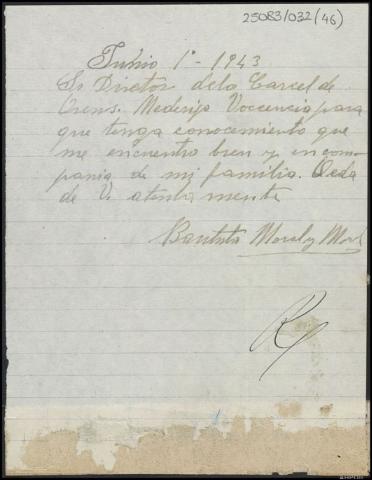 25083/032(46)
Junio 1º - 1943
Sr Diretor dela Carcel de
Orens. Mederijo Voccencia para
que tenga conocimiento que
me encuentro bien y en com-
pania de mi familia. Qeda
de V. atenta mente
Bautista Moral y Moral